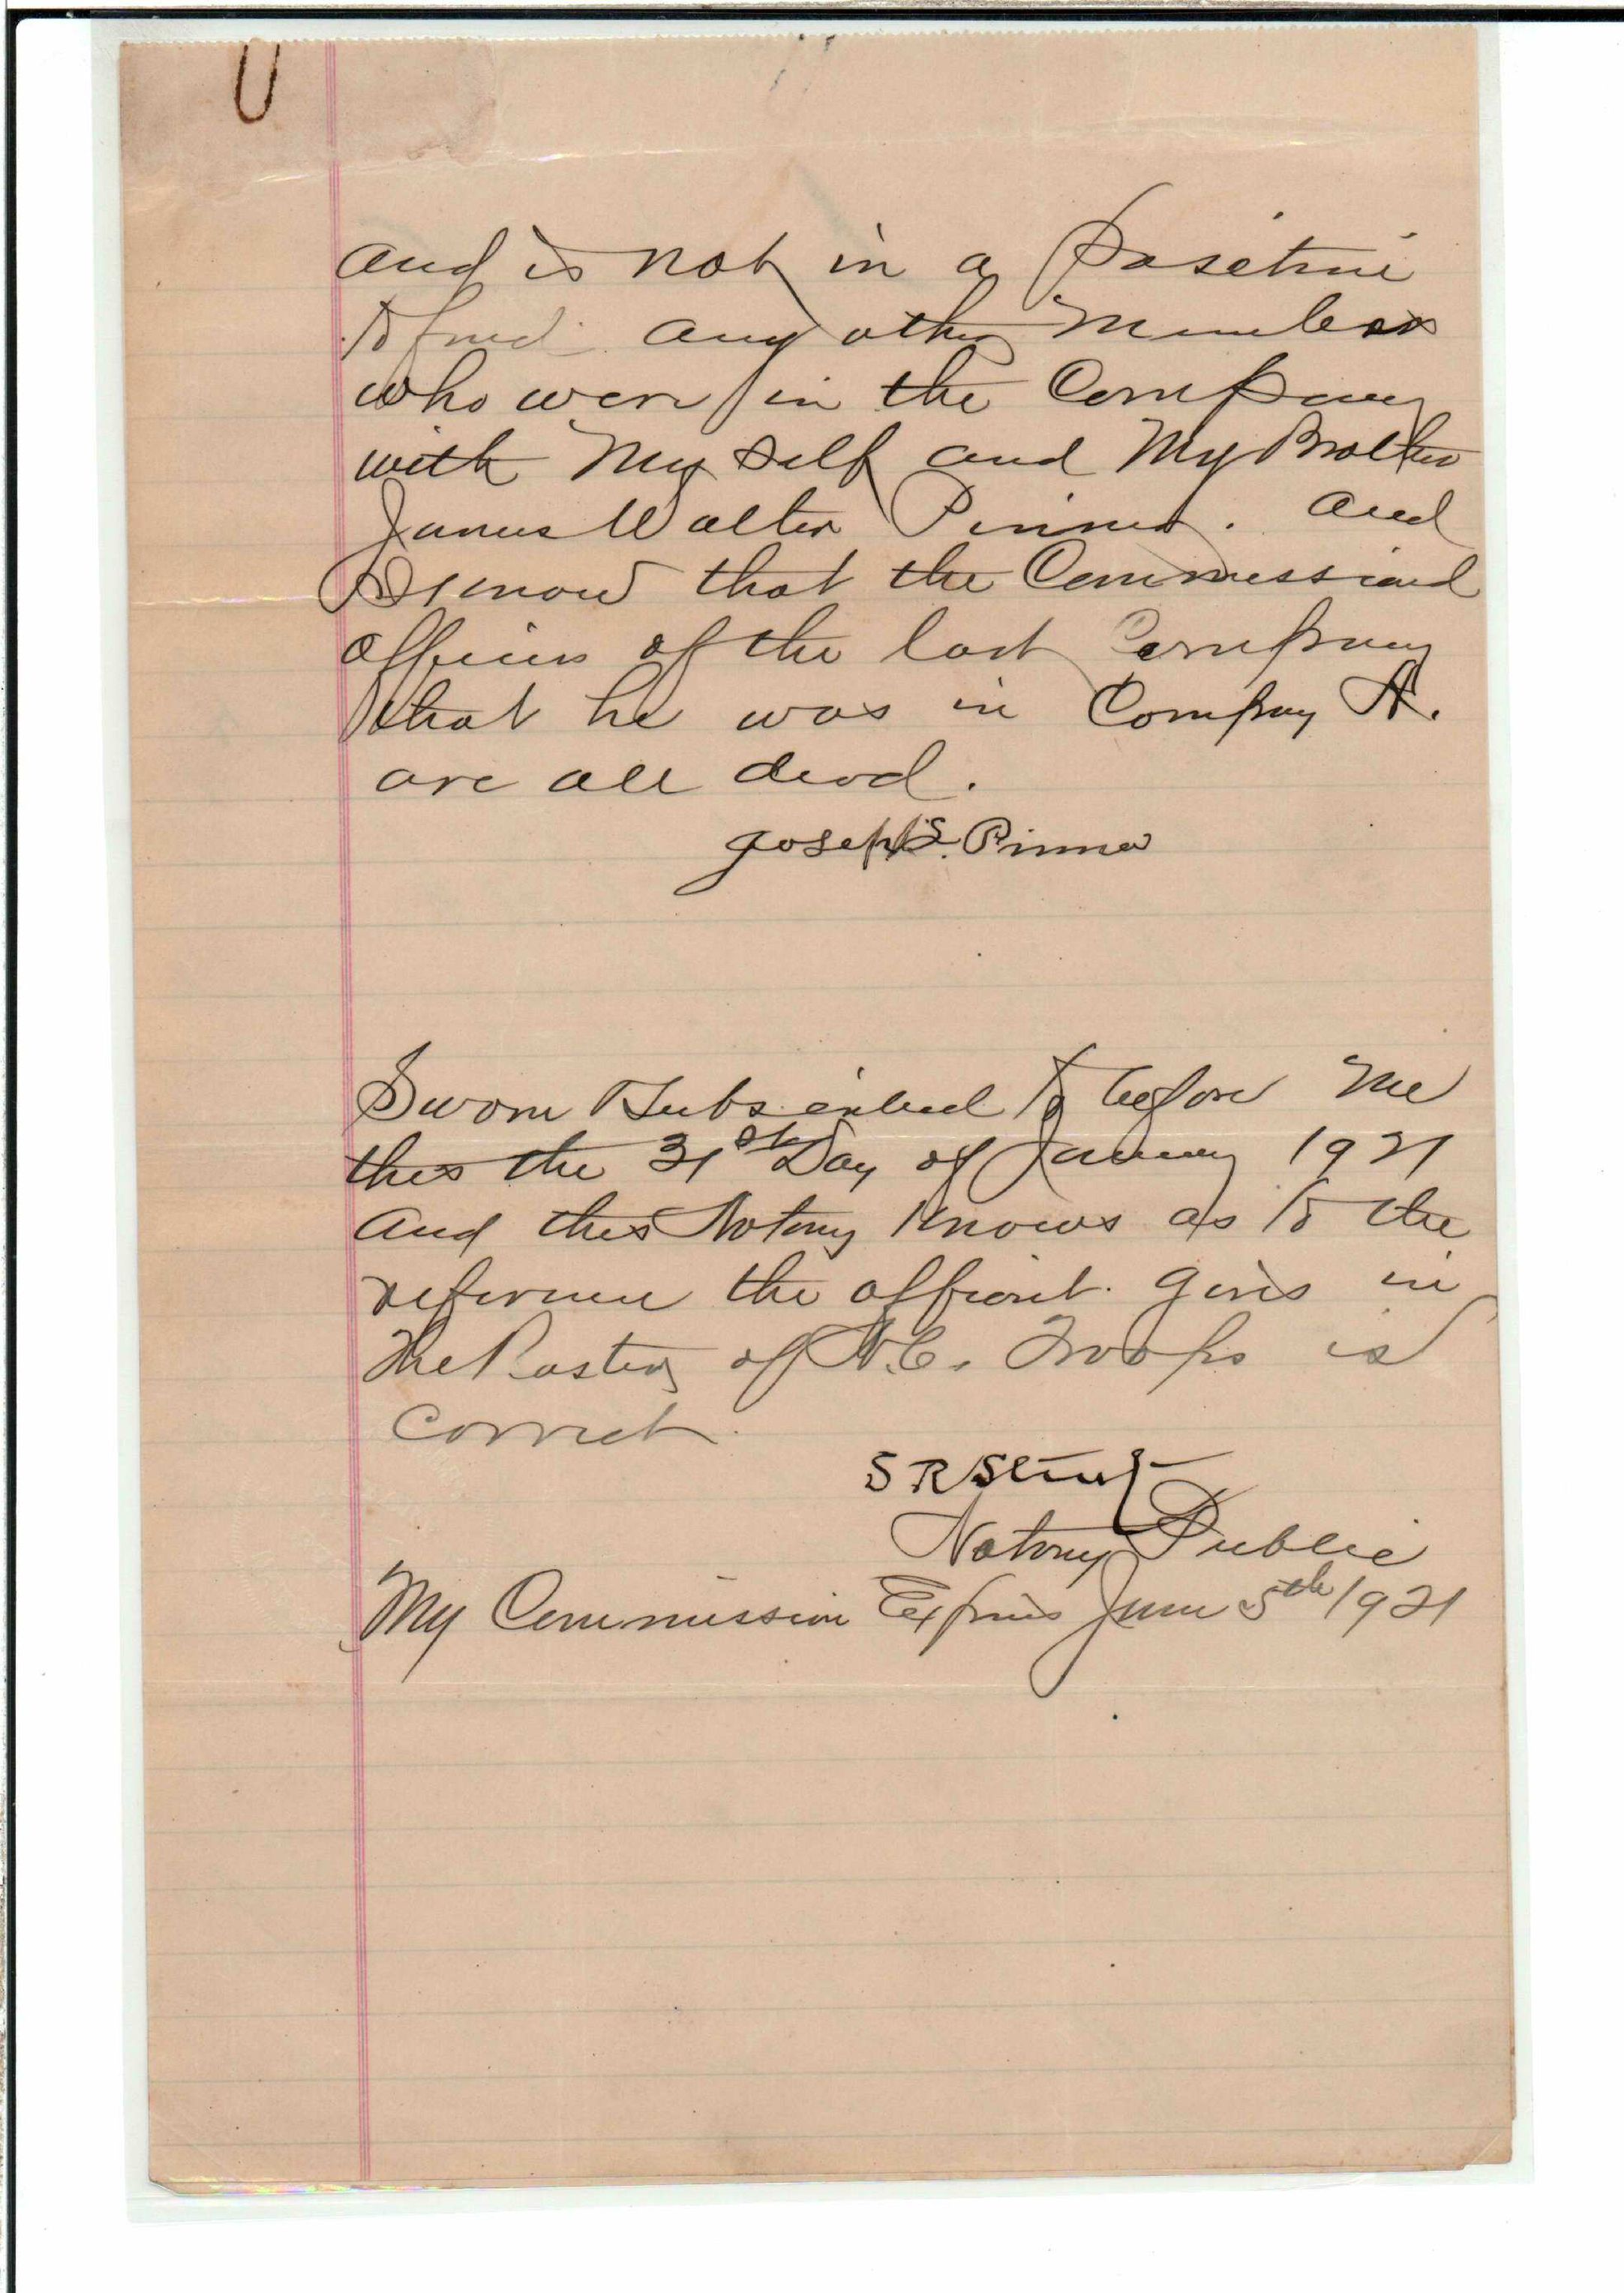 and is not in a position
to find any other members
who were in the Company
with My Self and My Brother
James Walter Pinner. and
I know that the Commissiond
officers of the last Company
that he was in Company A.
are all dead.
Joseph S. Pinner
Sworn & Subscribed to before me
this the 31st Day of January 1921
and this Notary Knows as to the
reference the affiant gives in
the Roster of N.C. Troops is
correct.
S R
Notary Public
My Commission Expires June 5th 1921